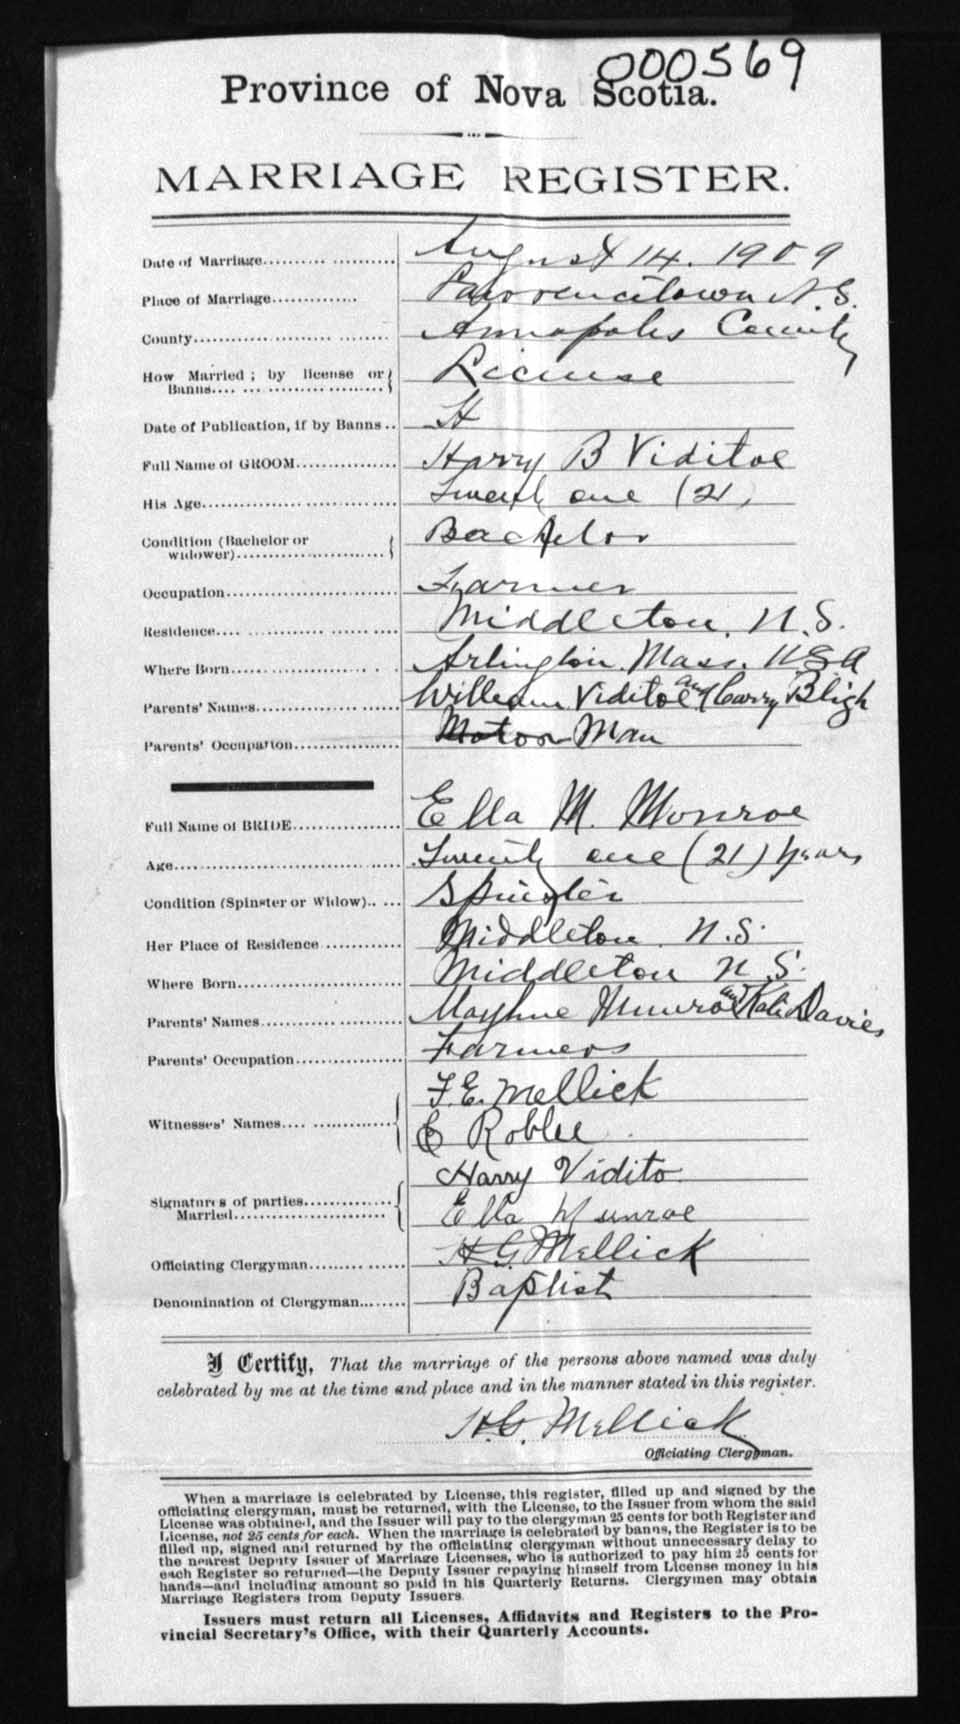 000569
Province of Nova Scotia.
MARRIAGE REGISTER.
Date of Marriage........ August 14. 1909
Place of Marriage........ Lawrencetown N.S.
County........ Annapolis County
How Married ; by license or Banns........ License
Date of Publication, if by Banns..
Full Name of GROOM........ Harry B Viditoe
His Age........ Twenty one (21)
Condition (Bachelor or widower)........ Bachelor
Occupation........ Farmer
Residence........ Middleton, N.S.
Where Born........ Arlington Mass. USA
Parents' Names........ William Viditoe and Carry Bligh
Parents' Occupation........ Motor Man
Full Name of BRIDE........ Ella M. Monroe
Age........ Twenty one (21) years
Condition (Spinster or Widow)...... Spinster
Her Place of Residence........ Middleton N.S.
Where Born........ Middleton N.S.
Parents' Names........ Munroe and Kati Davies
Parents' Occupation........ Farmers
Witnesses' Names........ F.E. Mellick
E Roblee
Signatures of parties Married........ Harry Vidito
Ella Munroe
Officiating Clergyman........ H G Mellick
Denomination of Clergyman........ Baptist
I Certify, That the marriage of the persons above named was duly
celebrated by me at the time and place and in the manner stated in this register.
H.G. Mellick
Officiating Clergyman.
When a marriage is celebrated by License, this register, filled up and signed by the
officiating clergyman, must be returned, with the License, to the Issuer from whom the said
License was obtained, and the Issuer will pay to the clergyman 25 cents for both Register and
License, not 25 cents for each. When the marriage is celebrated by banns, the Register is to be
filled up, signed and returned by the officiating clergyman without unnecessary delay to
the nearest Deputy Issuer of Marriage Licenses, who is authorized to pay him 25 cents for
each Register so returned—the Deputy Issuer repaying himself from License money in his
hands—and including amount so paid in his Quarterly Returns. Clergymen may obtain
Marriage Registers from Deputy Issuers.
Issuers must return all Licenses, Affidavits and Registers to the Pro-
vincial Secretary's Office, with their Quarterly Accounts.